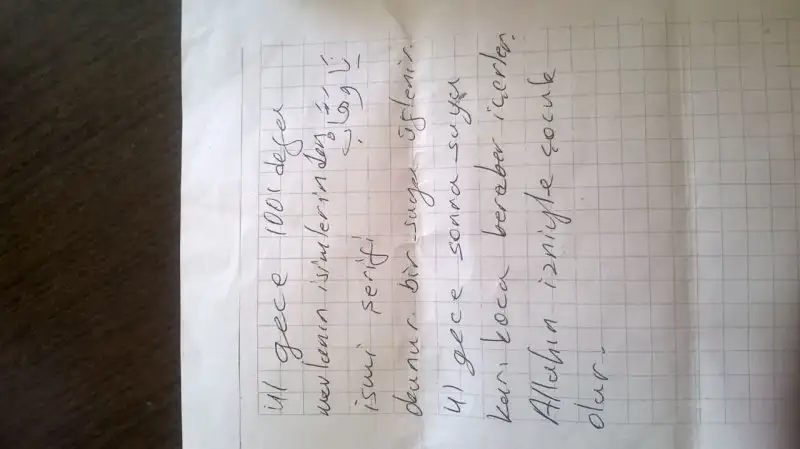 41 gece 1001 defa
mevlanın isimlerinden
ismi şerifi
okunur. bir suya üflenir.
41 gece sonra suyu
karı koca beraber içerler.
Allahın izniyle çocuk
olur.